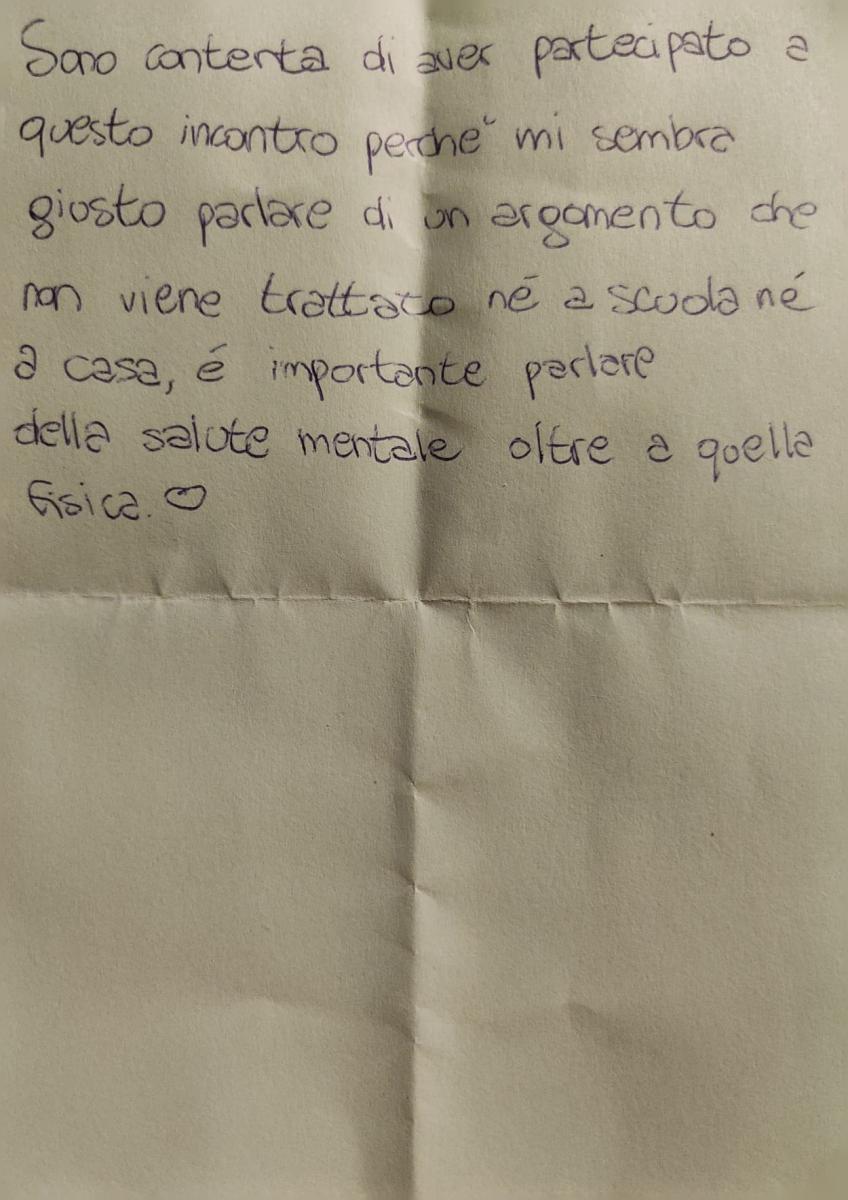 Sono contenta di aver partecipato a
questo incontro perché mi sembra
giusto parlare di un argomento che
non viene trattato né a scuola né
a casa, é importante parlare
della salute mentale oltre a quella
fisica. ♡